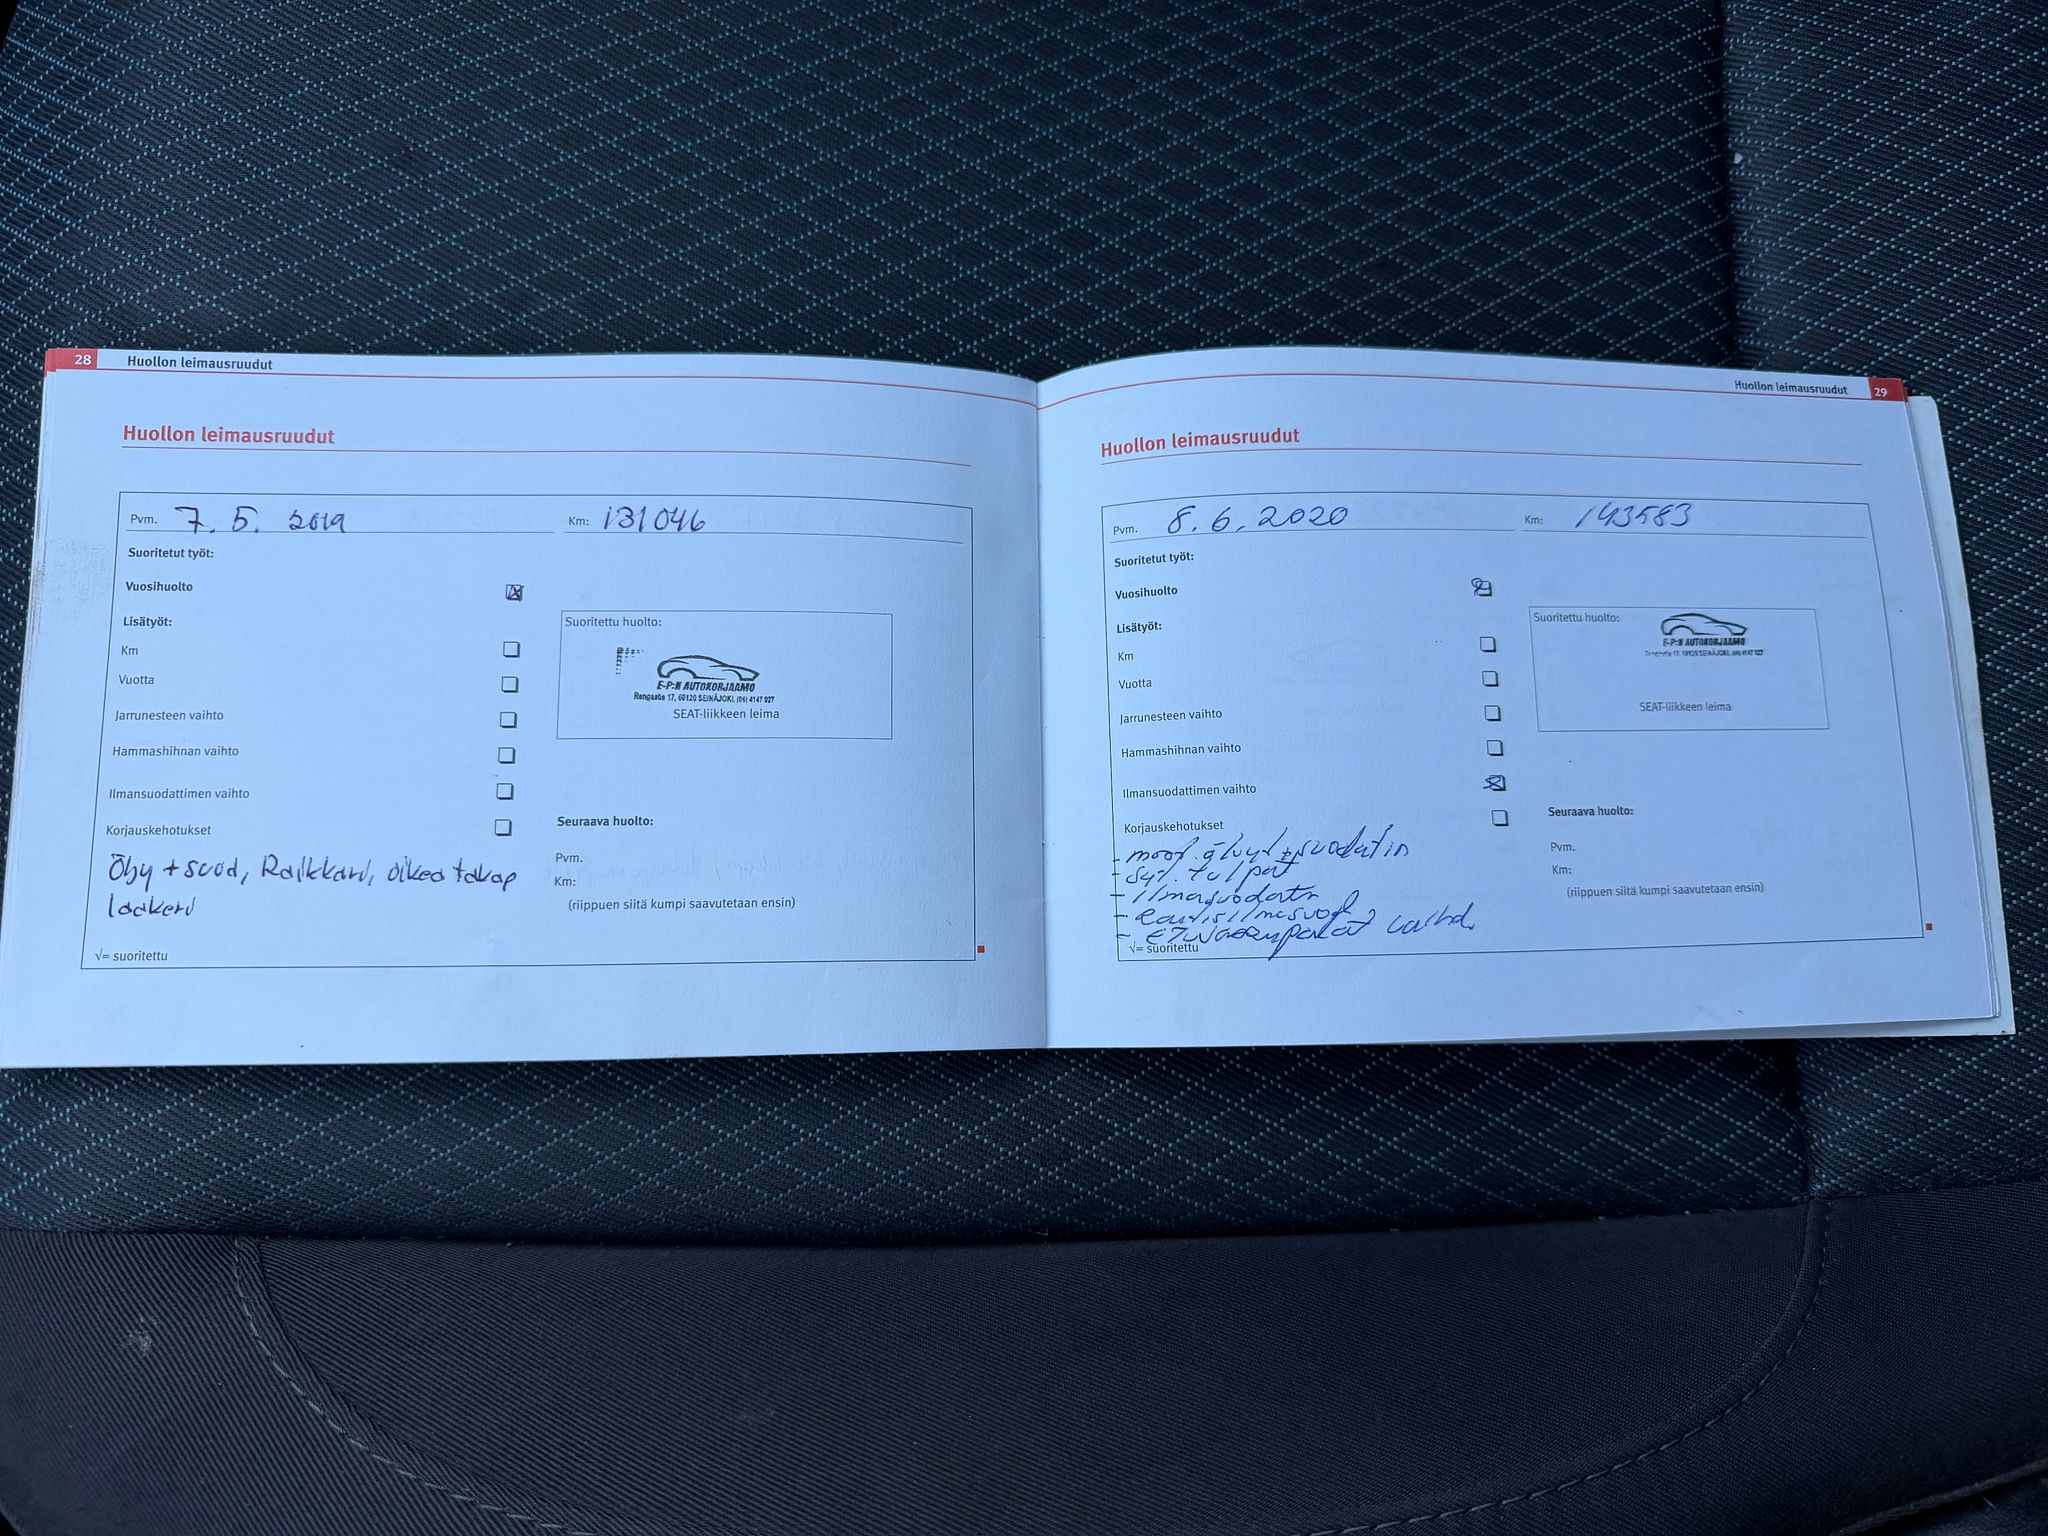 28 Huollon leimausruudut
Huollon leimausruudut
Pvm. 7. 5. 2019 Km: 131046
Suoritetut työt:
Vuosihuolto
Lisätyöt:
Km
Vuotta
Jarrunesteen vaihto
Hammashihnan vaihto
Ilmansuodattimen vaihto
Korjauskehotukset
Öljy + suod, Raikkari, oikea takap
laakeri
√= suoritettu
Suoritettu huolto:
E-P:N AUTOKORJAAMO
Rengastie 17, 60120 SEINÄJOKI, (06) 4147 927
SEAT-liikkeen leima
Seuraava huolto:
Pvm.
Km:
(riippuen siitä kumpi saavutetaan ensin)
Huollon leimausruudut 29
Huollon leimausruudut
Pvm. 8. 6. 2020 Km: 143583
Suoritetut työt:
Vuosihuolto
Lisätyöt:
Km
Vuotta
Jarrunesteen vaihto
Hammashihnan vaihto
Ilmansuodattimen vaihto
Korjauskehotukset
- moot. öljyt + suodatin
- syt. tulpat
- ilmansuodatin
- raitisilmasuod
- etujousenpalat vaihd.
√= suoritettu
Suoritettu huolto:
E-P:N AUTOKORJAAMO
17, 60120 SEINÄJOKI, (06) 4147 927
SEAT-liikkeen leima
Seuraava huolto:
Pvm.
Km:
(riippuen siitä kumpi saavutetaan ensin)